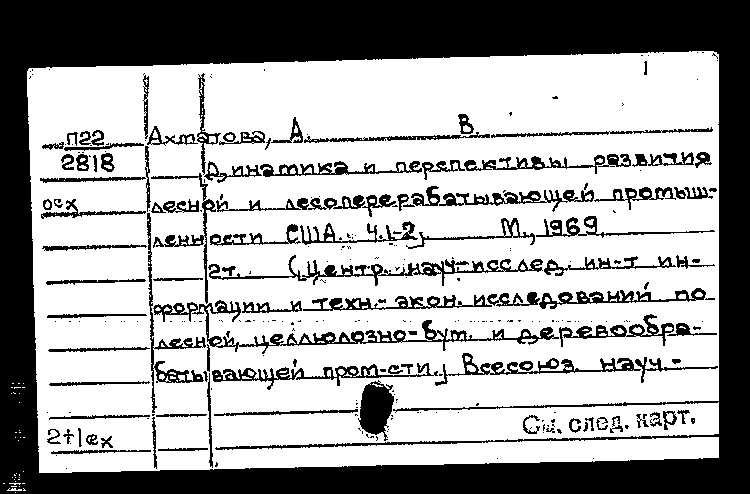 1
П22 Ахматова, А. В.
2818 Динамика и перспективы развития
осх лесной и лесоперерабатывающей промыш-
ленности США. Ч.1-2. М., 1969.
2т. (Центр. науч-исслед. ин-т ин-
формации и техн.-экон. исследований по
лесной, целлюлозно-бум. и деревообра-
батывающей пром-сти. Всесоюз. науч.-
См. след. карт.
2т|ех